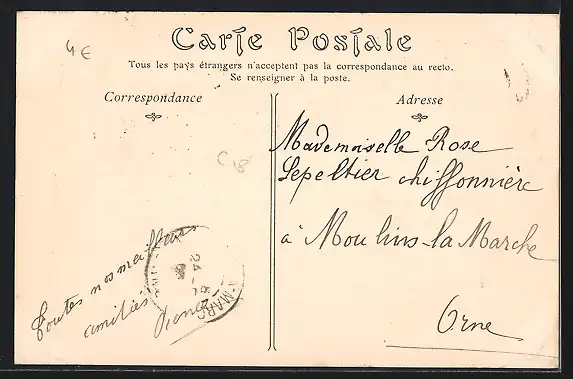 4€
Carte Postale
Tous les pays étrangers n'acceptent pas la correspondance au recto.
Se renseigner à la poste.
Correspondance
Adresse
C18
Mademoiselle Rose
Lepeltier chiffonnière
à Moulins-la-Marche
Orne
Toutes nos meilleures
amitiés
24